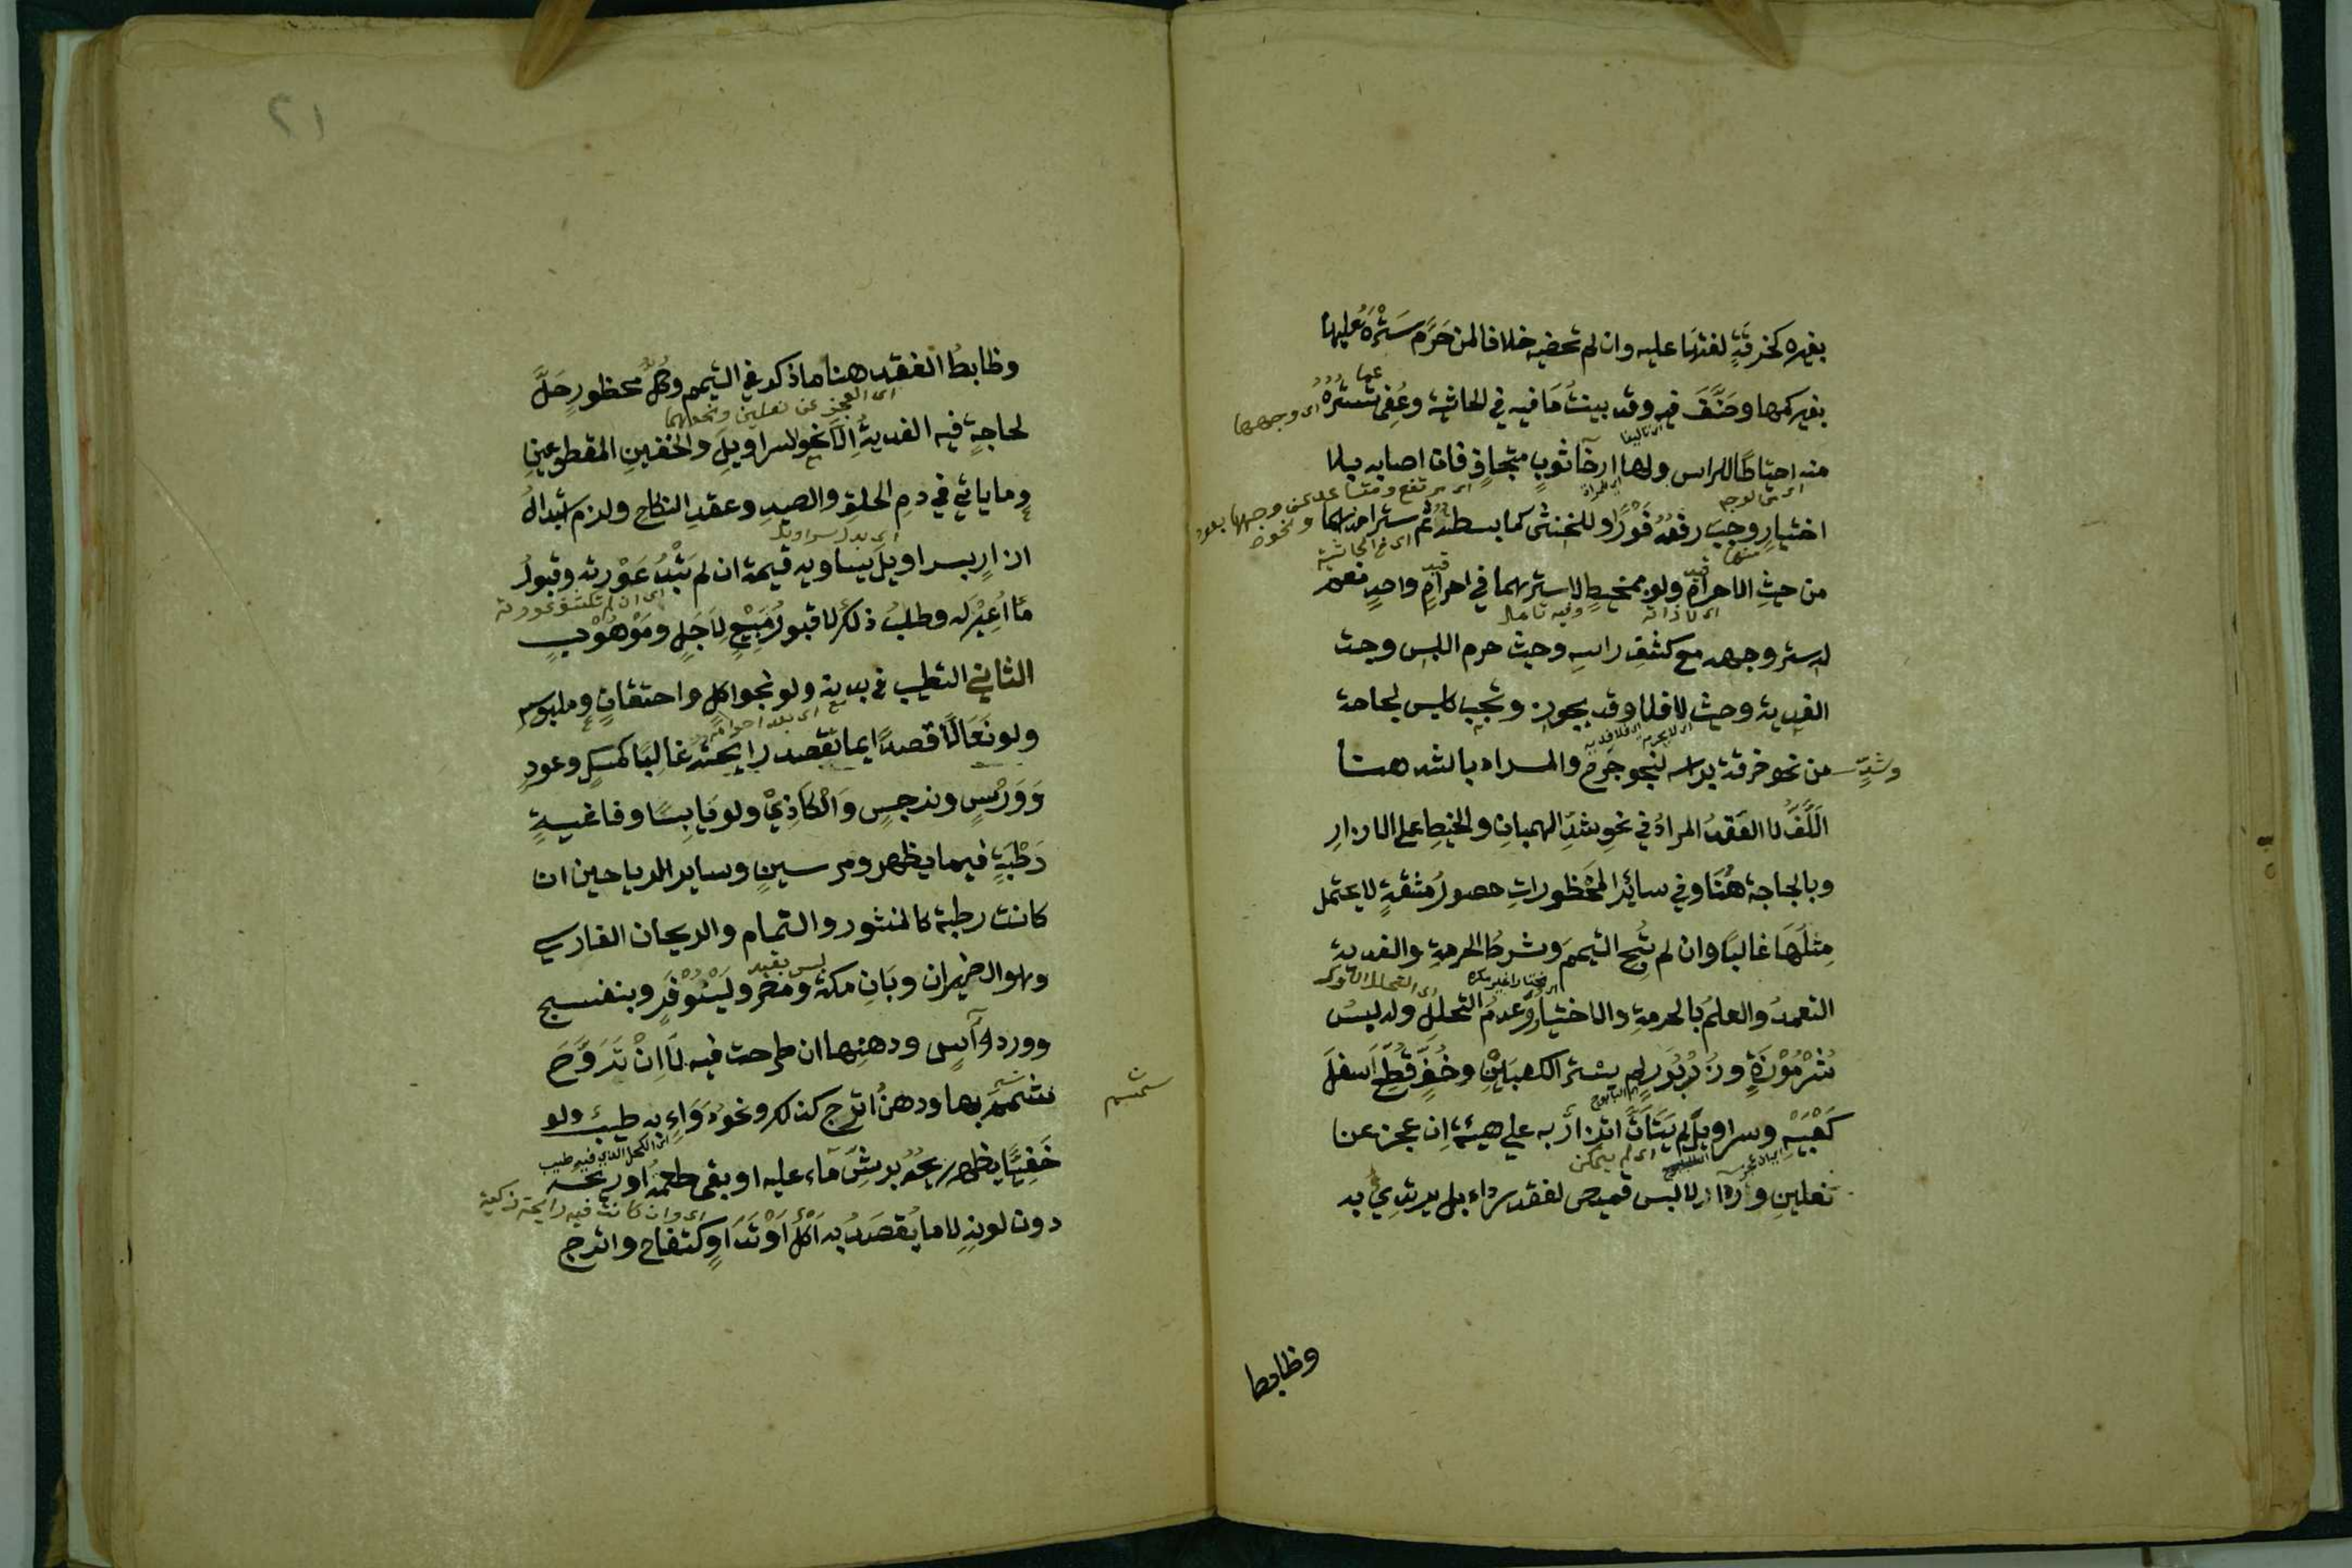 بغيره كخرقةٍ لفتها عليه وان لم تحضبه خلافا لمن حَرَّم سَتْرَهُ عليها
بغير كمها وصَنَّفَ فيه وقد بينتُ مَا فيه في الحاشية وعُفِي تستُره
اى وجهها
منه احتياطًا للراس ولها ارخآ ثوبٍ متجافٍ فان اصابه بلا
اختيارٍ وجبَ رفعُهُ فَوْرًا وللخنثى كما بسطتُه ثَم ستر احدهما
من حيث الاحرام ولو بمخيطٍ لا سترهما في احرامٍ واحدٍ نعم
اى لا ذاته
وفيه تامل
له ستر وجهه مع كشف راسه وحيث حرم اللبس وجبت
الفدية وحيث لا فلا وقد يجوز وتجب كلبس لحاجة
وشدٍّ
من نحو خرقة براسه لنحو جَرحٍ والمراد بالشد هنا
اللَّفُّ لا العَقدُ المرادُ في نحوِ شدِّ الهميانِ والخيطِ على الازارِ
وبالحاجة هُنَا وفي سائر المَحْظوراتِ حصولُ مشقةٍ لا يحتمل
مِثلُهَا غالبًا وان لم تُبِح التيممَ وشرطُ الحرمةِ والفديةِ
التعمدُ والعلمُ بالحرمةِ والاختيارُ وعدمُ التحللِ وله لبسُ
سُرْمُوْزَةٍ وزُرْبُوَلٍ لم يستر الكعبَيْنِ وخُفٍّ قُطِعَ اَسفلَ
كَعْبَيْه وسراويلَ لم يَتَأَتَّ اتزارٌ به على هيئتِهِ اِن عجز عن
اى لم يمكن
نعلينِ وازارٍ لا لبس قميص لفقد رداء بل يرتدي به
وظابط
٢١
وظابطُ الفقد هنا ما ذكر في التيمم وكلُّ محظورٍ حَلَّ
اى العجز عن نعلين ونحوهما
لحاجةٍ فيه الفديةُ اِلّا نحو السراويلِ والخفينِ المقطوعينِ
وما ياتي في دمِ الحلقِ والصيدِ وعقدِ النكاحِ ولزم ابدالُ
اى بدل سراويل
ازارٍ بسراويلَ يساويه قيمة ان لم تَبْدُ عَوْرته وقبولُ
اى ان لم تكشف عورته
مَا اُعِيْرَ له وطلبُ ذلك لا قبولُ مَبِيْعٍ لاَجَلٍ ومَوْهُوْبٍ
الثاني التطيب في بدنه ولو بنحو اكلٍ واحتقانٍ وملبوسِه
اى بعد احرامه
ولو نَعْالًا قصدًا بما تُقصد رايحتُه غالبًا كمسكٍ وعودٍ
وَوَرْسٍ ونرجسٍ وَالْكَاذِيْ ولو يَابِسًا وفاغيةٍ
رَطْبَةٍ فيما يظهر ومرسينٍ وساير الرياحين ان
كانت رطبة كالمنثور والنمام والريحان الفارسي
ليس بقيد
وهو الضيمران وبَانِ مكة ومصر ولَيْنُوْفَرٍ وبنفسجٍ
ووردٍ وآسٍ ودهنِها ان طرحت فيه لَا اِنْ تَرَوَّحَ
سمسم
سمسم بها ودهنُ اترج كذلك ونحوُ دَوَاءٍ به طيبٌ ولو
اى الكحل الذي فيه طيب
خَفِيًّا يظهر ريحُهُ برشِّ مَاء عليه او بقي طعمُهُ اوريحُه
اى وان كانت فيه رايحة زكية
دون لونِهِ لا ما يُقصَدُ به اَكْلٌ اَوْ تَدَاوٍ كتفاح واترج